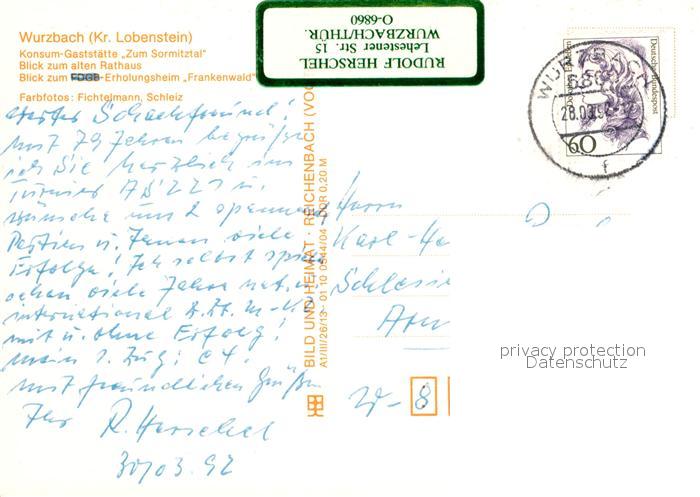 Wurzbach (Kr. Lobenstein)
Konsum-Gaststätte „Zum Sormitztal"
Blick zum alten Rathaus
Blick zum FDGB-Erholungsheim „Frankenwald"
Farbfotos: Fichtelmann, Schleiz
RUDOLF HERSCHEL
Lehestener Str. 15
WURZBACH/THÜR.
O-6860
Werter Schachfreund!
mit 79 Jahren begrüße
ich Sie herzlich im
Turnier AB 227 u.
wünsche uns 2 spannende
Partien u. Ihnen viele
Erfolge! Ich selbst spiele
schon viele Jahre nat. u.
international
mit u. ohne Erfolg!
mein 1. Zug: c4!
mit freundlichen Grüßen
Ihr R. Herschel
30/03.92
BILD UND HEIMAT · REICHENBACH (VOG
A1/III/26/13 01 10 0544/04 DDR 0,20 M
Deutsche Bundespost
60
WURZBACH
6860
28.03.92
f
Herrn
Karl-He
Schlesie
W-8
privacy protection
Datenschutz